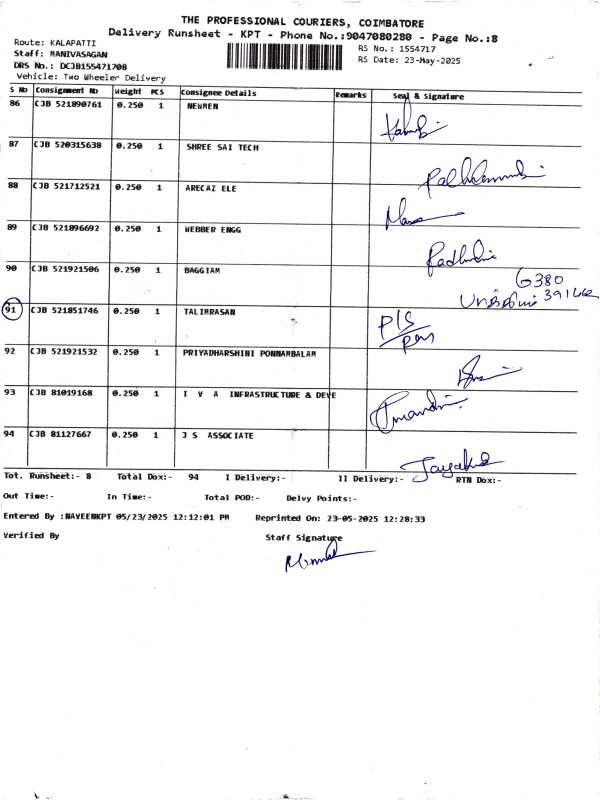 THE PROFESSIONAL COURIERS, COIMBATORE
Delivery Runsheet - KPT - Phone No.:9047080280 - Page No.:8
Route: KALAPATTI
RS No.: 1554717
Staff: MANIVASAGAN
RS Date: 23-May-2025
DRS No.: DCJB155471708
Vehicle: Two Wheeler Delivery
S No Consignment No Weight PCS Consignee Details Remarks Seal & Signature
86 CJB 521890761 0.250 1 NEWMEN
87 CJB 520315638 0.250 1 SHREE SAI TECH
88 CJB 521712521 0.250 1 ARECAZ ELE
89 CJB 521896692 0.250 1 WEBBER ENGG
90 CJB 521921506 0.250 1 BAGGIAM
91 CJB 521851746 0.250 1 TALIMRASAN P/S
92 CJB 521921532 0.250 1 PRIYADHARSHINI PONNAMBALAM
93 CJB 81019168 0.250 1 I V A INFRASTRUCTURE & DEVE
94 CJB 81127667 0.250 1 J S ASSOCIATE
Tot. Runsheet:- 8 Total Dox:- 94 I Delivery:- II Delivery:- RTN Dox:-
Out Time:- In Time:- Total POD:- Delvy Points:-
Entered By :NAVEENKPT 05/23/2025 12:12:01 PM Reprinted On: 23-05-2025 12:28:33
Verified By Staff Signature